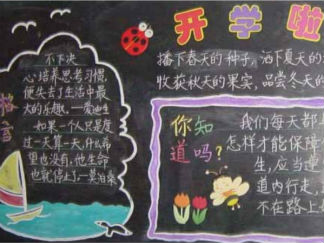 开学啦
播下春天的种子,洒下夏天的
收获秋天的果实,品尝冬天的
格言
不下决
心培养思考习惯,
便失去了生活中最
大的乐趣。—爱迪生
如果一个人只是度
过一天算一天,什么希
望也没有,他生命
也就停了—莫泊桑
你知
道吗?
我们每天都
怎样才能保障
生,应当遵
道内行走,
不在路上